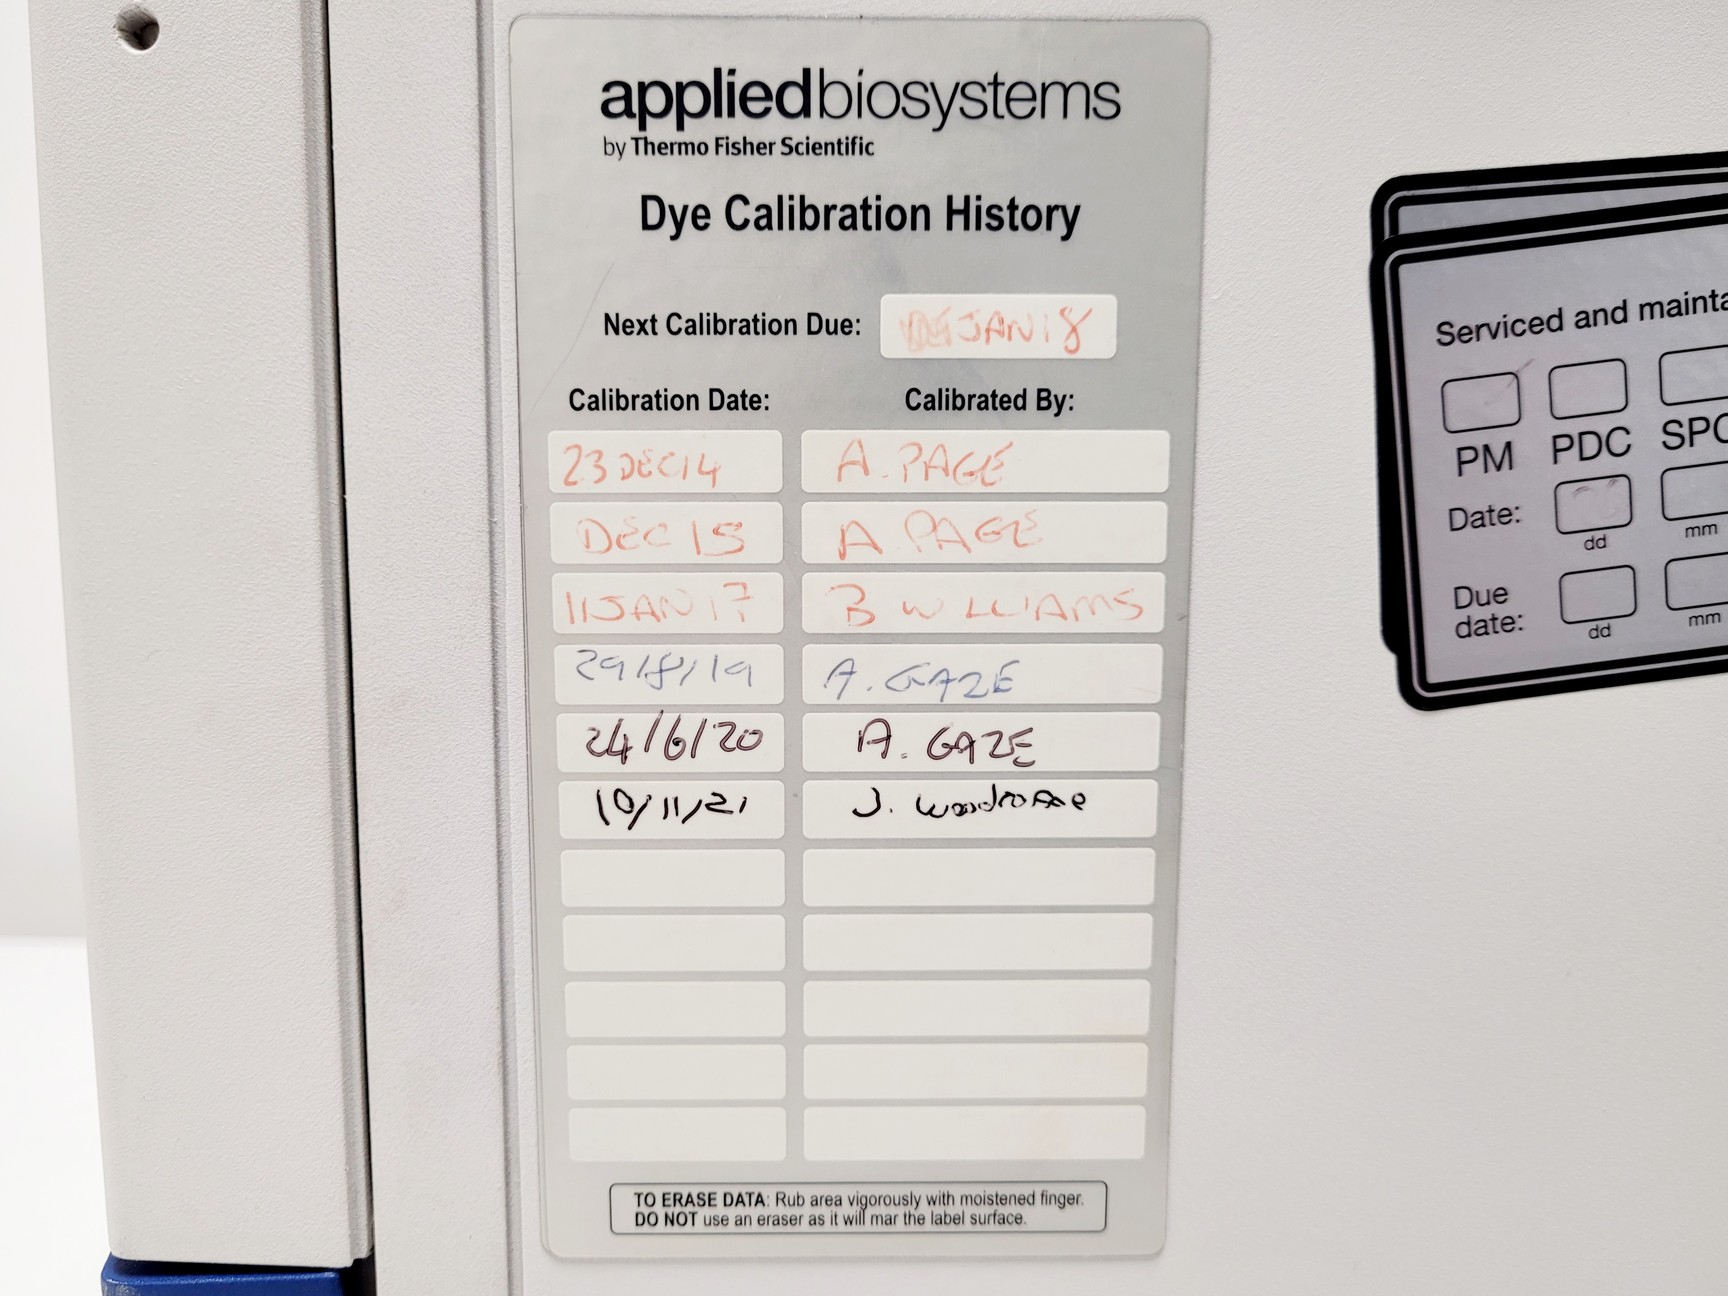 appliedbiosystems
by Thermo Fisher Scientific
Dye Calibration History
Next Calibration Due: JAN 18
Calibration Date: Calibrated By:
23 DEC 14 A. PAGE
DEC 15 A PAGE
11 JAN 17 B WILLIAMS
29/8/19 A. GAZE
24/6/20 A. GAZE
10/11/21 J.
TO ERASE DATA: Rub area vigorously with moistened finger.
DO NOT use an eraser as it will mar the label surface.
Serviced and mainta
PM PDC SPC
Date:
dd mm
Due
date:
dd mm